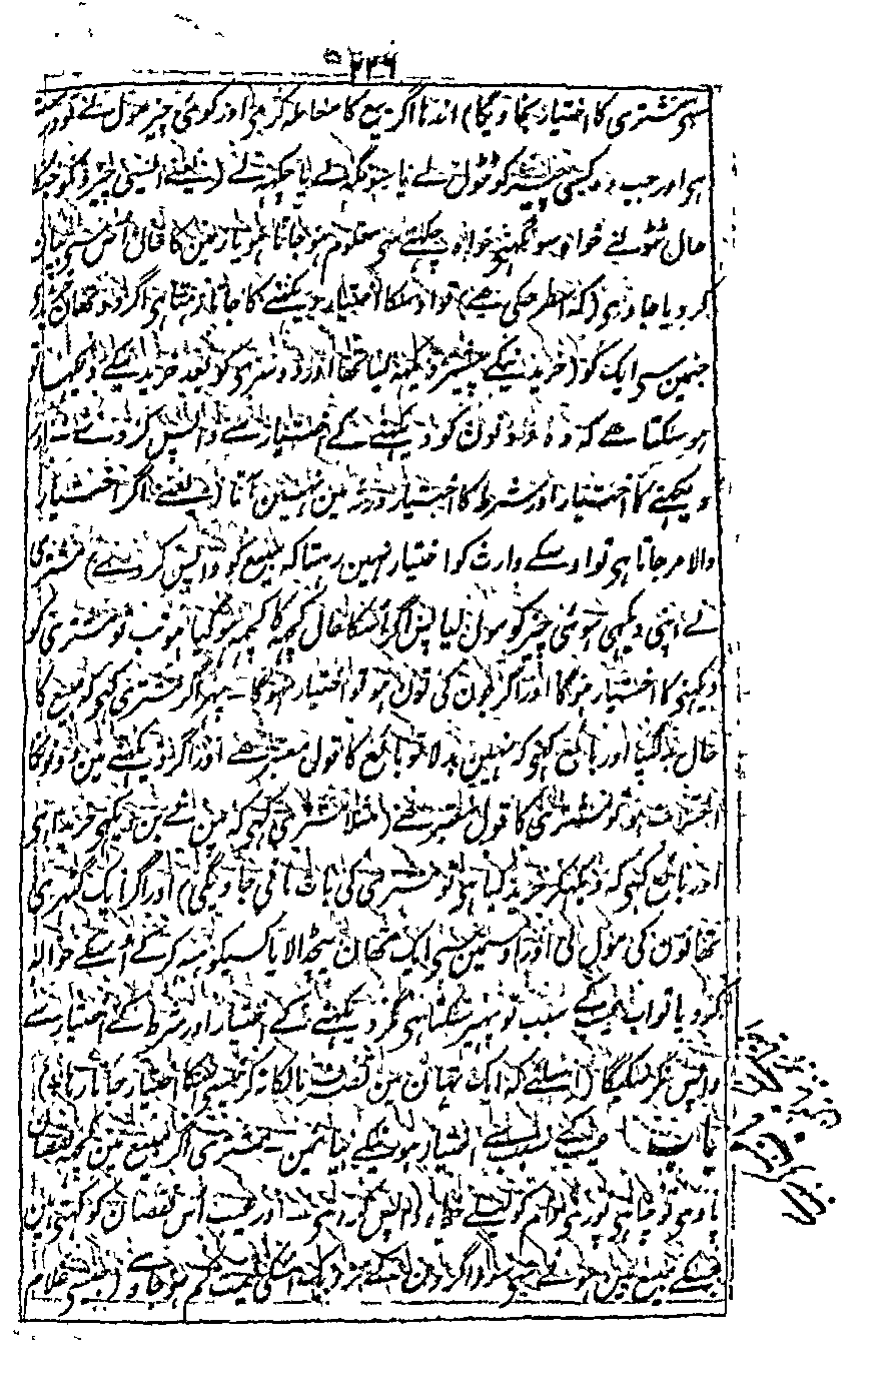 ۲۲۶
سے مشتری کا اختیار نجاویگا) اندہا اگر بیع کا معاملہ کرے اور کوئی چیز مول لے تو درست
ہی اور جب وہ کسی چیز کو ٹٹول لے یا سونگھ لے یا چکھ لے (یعنے ایسی چیز کو جسکا
حال ٹٹولنے خواہ سونگھنے خواہ چکھنے سے معلوم ہو جاتا ہو یا زمین کا حال اس سے بیان
کر دیا جاوے (کہ اسطرحکی ہے) تو اوسکا اختیار دیکھنے کا جاتا رہتا ہی اگر دو تھان
جنمین سے ایک کو (خریدنیکے پیشتر دیکھ لیا تھا اور دوسرے کو بعد خریدنیکے دیکھا تو
ہو سکتا ہے کہ وہ دونون کو دیکھنے کے اختیار سے واپس کر دے اور
دیکھنے کا اختیار اور شرط کا اختیار ورثہ مین نہین آتا (یعنے اگر اختیار
والا مر جاتا ہی تو اوسکے وارث کو اختیار نہین رہتا کہ مبیع کو واپس کر دے) مشتری
نے اپنی دیکھی ہوئی چیز کو مول لیا پس اگر اُسکا حال کچھ کا کچھ ہو گیا ہو تب تو مشتری کو
دیکھنے کا اختیار ہوگا اور اگر جون کی تون ہو تو اختیار نہوگا ۔ پھر اگر مشتری کہے کہ مبیع کا
حال بدل گیا اور بائع کہے کہ نہین بدلا تو بائع کا قول معتبر ہے اور اگر دیکھنے مین دونوکا
اختلاف ہو تو مشتری کا قول معتبر ہے (مثلا مشتری کہے کہ مین نے بن دیکھے خریدا ہی
اور بائع کہے کہ دیکھکر خرید کیا ہی تو مشتری کی بات مانی جاویگی) اور اگر ایک گٹھری
تھانون کی مول لی اور اوسمین سے ایک تھان بیچ ڈالا یا کسیکو ہبہ کر کے اُسکے حوالہ
کر دیا تو اب عیب کے سبب تو پھیر سکتا ہی مگر دیکھنے کے اختیار اور شرط کے اختیار سے
واپس نکر سکیگا (اسلئے کہ ایک تھان مین تصرف مالکانہ کرنیسے اُسکا اختیار جاتا رہا)
باب عیب کے سبب سے اختیار ہونیکے بیانمین ۔ مشتری اگر مبیع مین کچھ نقصان
پاوے تو چاہے تو پورے دام کو لے خواہ واپس کر دے اور عیب اُس نقصان کو کہتے ہین
جسکے مبیع مین ہونے سے سوداگرون کے نزدیک اسکی قیمت کم ہو جاوے (جیسے غلام